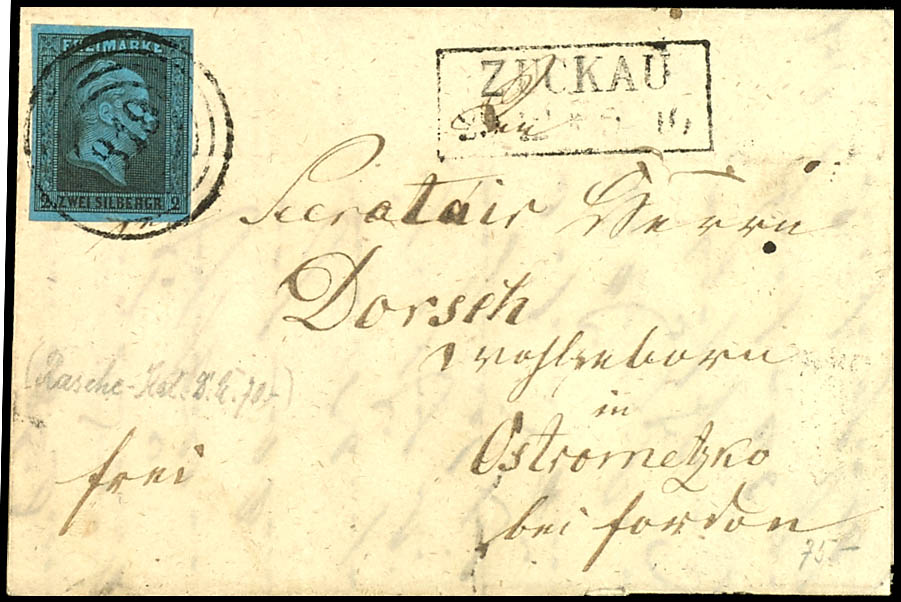 FREIMARKE
2 ZWEI SILBERGR. 2
ZUCKAU
Den
Secretair Herrn
Dorsch
wohlgeborn
in
Ostrometzko
bei Fordon
frei
75-